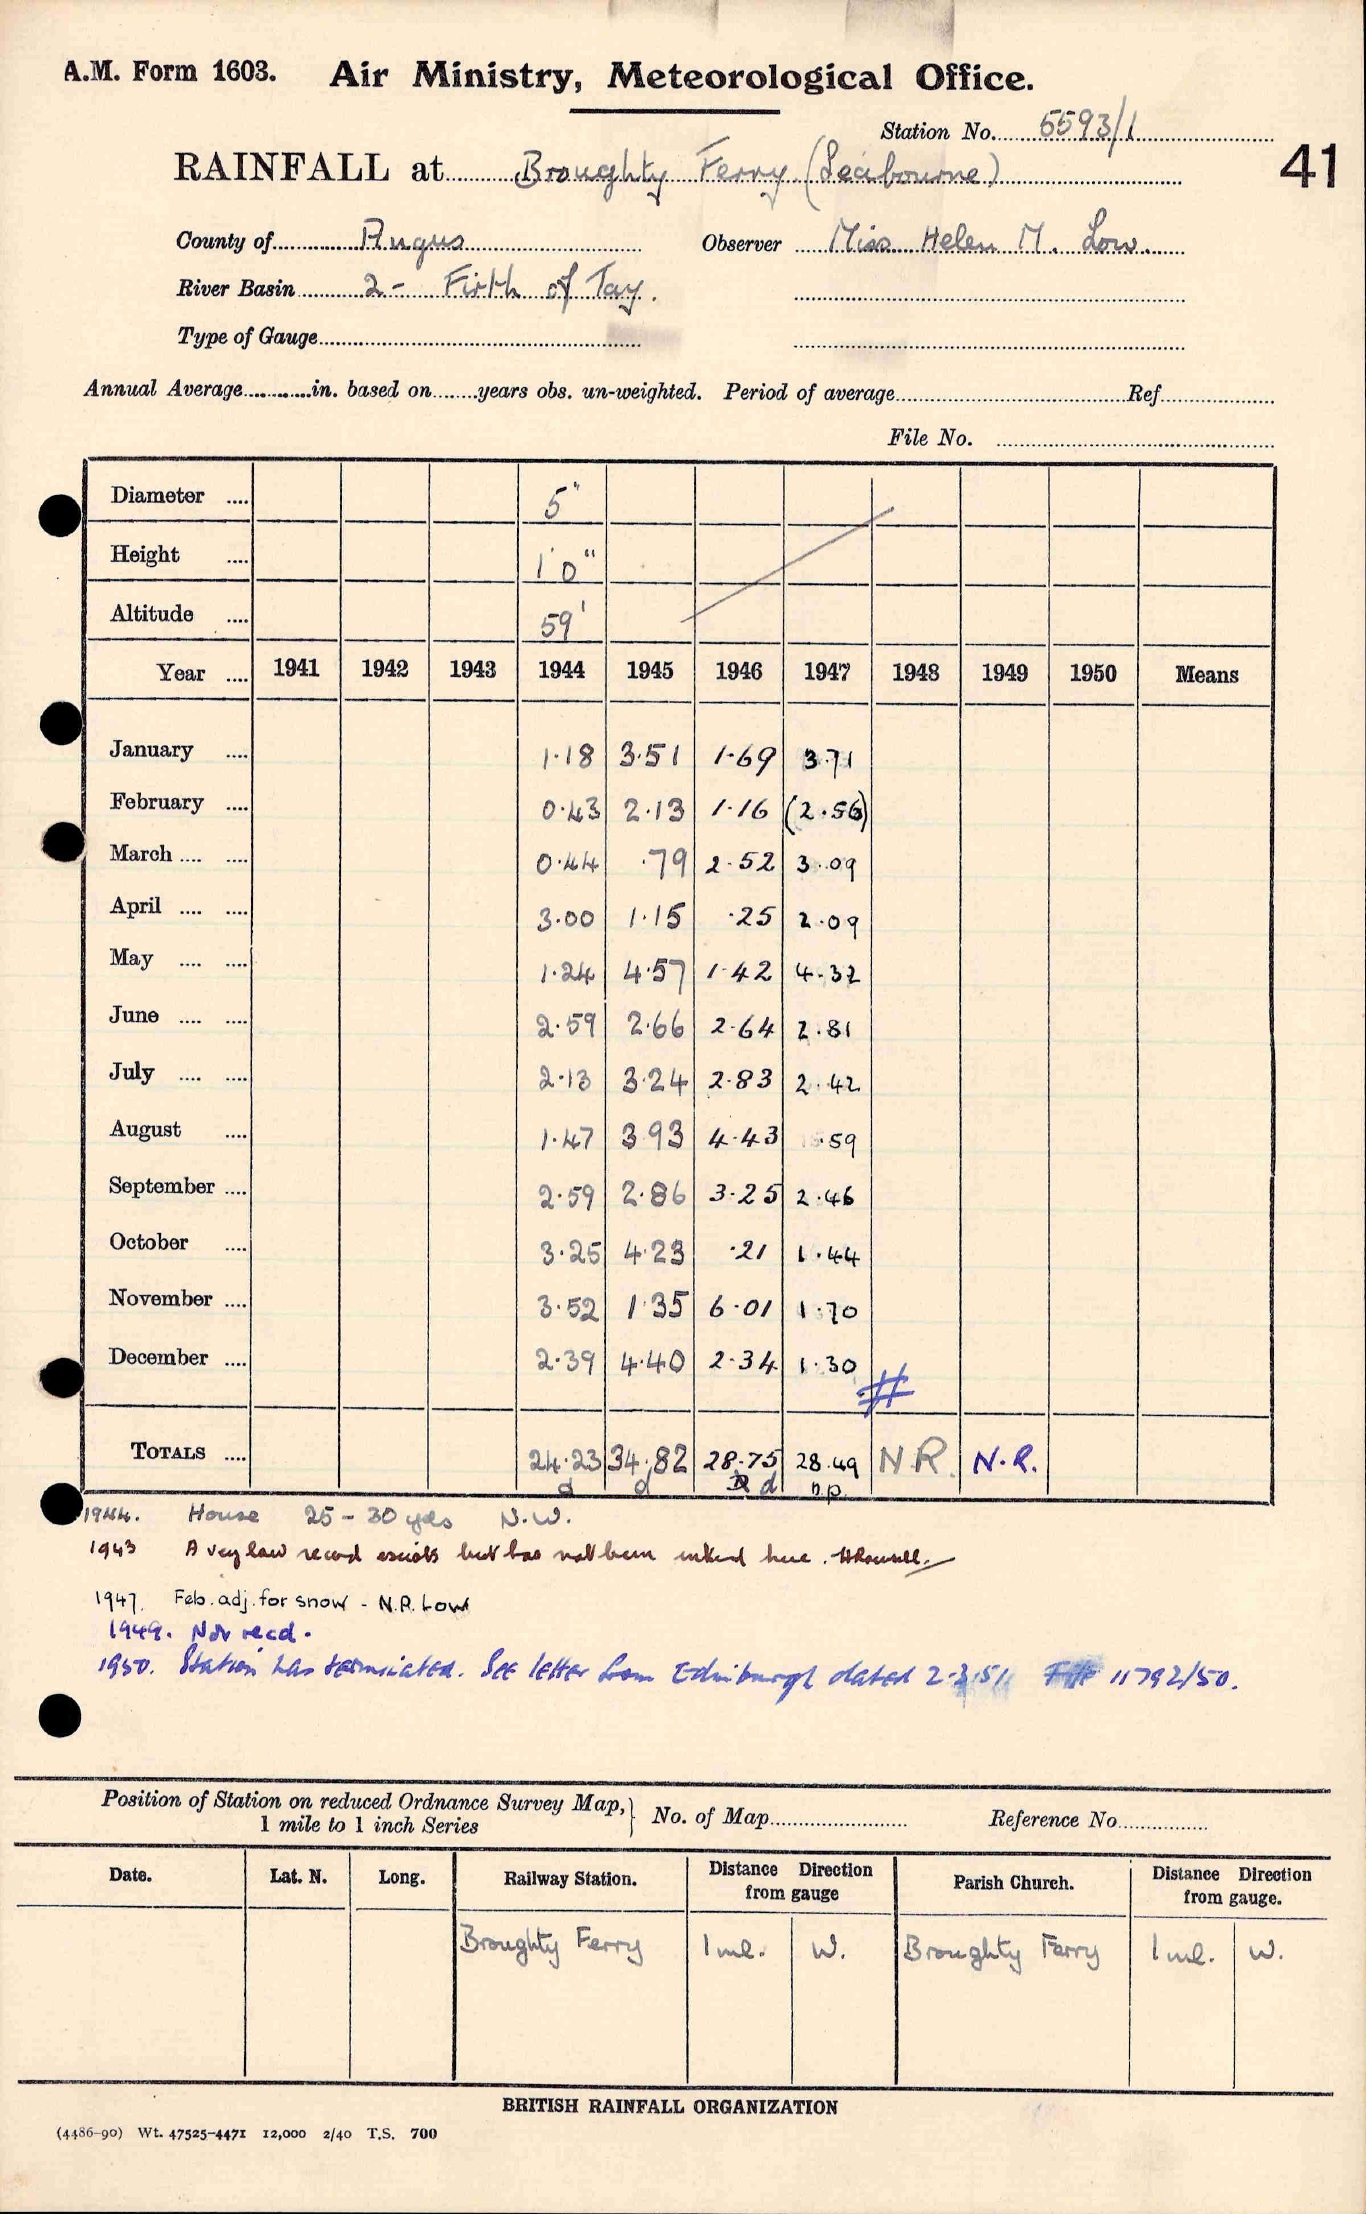 A.M. Form 1603. Air Ministry, Meteorological Office.
Station No. 5593/1
41
RAINFALL at Broughty Ferry (Seabourne)
County of Angus Observer Miss Helen M. Low.
River Basin 2- Firth of Tay.
Type of Gauge
Annual Average in. based on years obs. un-weighted. Period of average Ref
File No.
Diameter 5"
Height 1'0"
Altitude 59'
Year 1941 1942 1943 1944 1945 1946 1947 1948 1949 1950 Means
January 1.18 3.51 1.69 3.71
February 0.43 2.13 1.16 (2.56)
March 0.44 .79 2.52 3.09
April 3.00 1.15 .25 2.09
May 1.24 4.57 1.42 4.32
June 2.59 2.66 2.64 2.81
July 2.13 3.24 2.83 2.42
August 1.47 3.93 4.43 .59
September 2.59 2.86 3.25 2.46
October 3.25 4.23 .21 1.44
November 3.52 1.35 6.01 1.70
December 2.39 4.40 2.34 1.30
#
TOTALS 24.23 34.82 28.75 28.49 N.R. N.R.
d d d n.p.
1944. House 25-30 yds N.W.
1943 A very low record exists but has not been inked here.
1947. Feb. adj. for snow - N.R. Low
1949. Not recd.
1950. Station has terminated. See letter from Edinburgh dated 2.3.51. File 11792/50.
Position of Station on reduced Ordnance Survey Map, 1 mile to 1 inch Series } No. of Map Reference No
Date. Lat. N. Long. Railway Station. Distance Direction from gauge Parish Church. Distance Direction from gauge.
Broughty Ferry 1 ml. W. Broughty Ferry 1 ml. W.
BRITISH RAINFALL ORGANIZATION
(4486-90) Wt. 47525-4471 12,000 2/40 T.S. 700